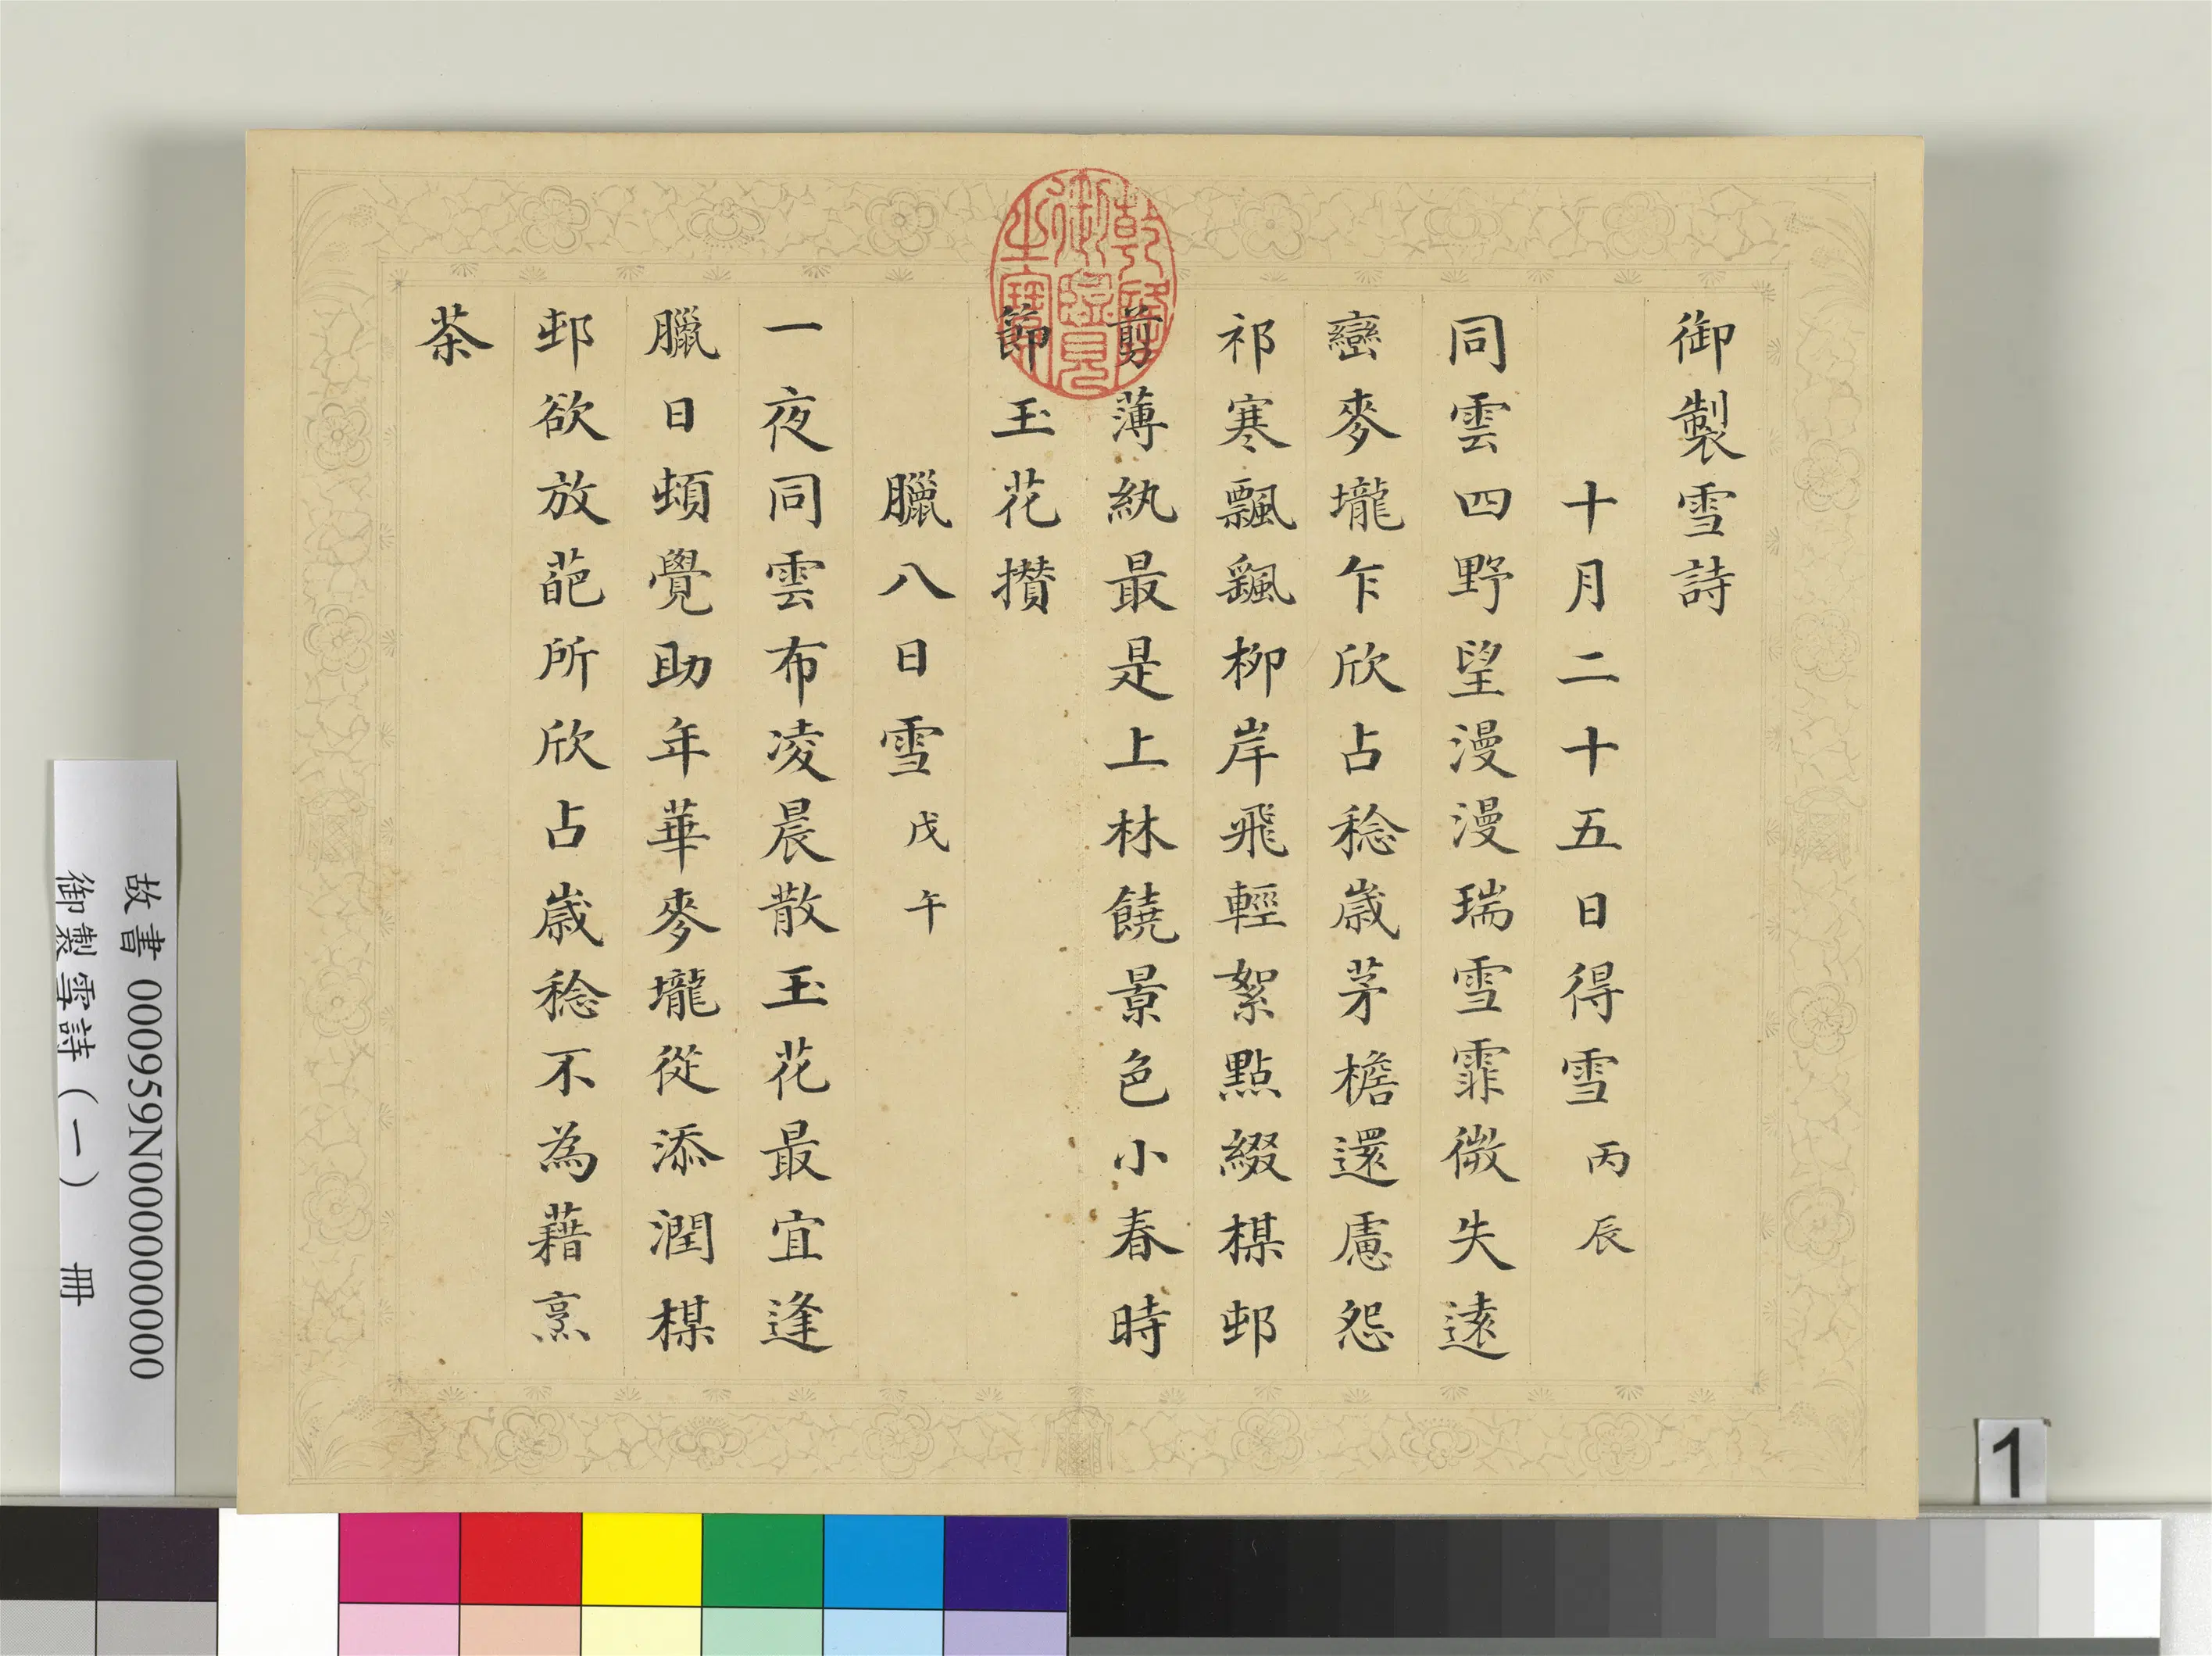 御製雪詩
十月二十五日得雪丙辰
同雲四野望漫漫瑞雪霏微失遠
巒麥壠乍欣占稔歲茅檐還慮怨
祁寒飄颻柳岸飛輕絮點綴楳邨
剪薄紈最是上林饒景色小春時
節玉花攅
臘八日雪戊午
一夜同雲布凌晨散玉花最宜逢
臘日頓覺助年華麥壠從添潤楳
邨欲放葩所欣占歲稔不為藉烹
茶
乾隆御覽之寶
故書 000959N000000000
御製雪詩（一） 冊
1